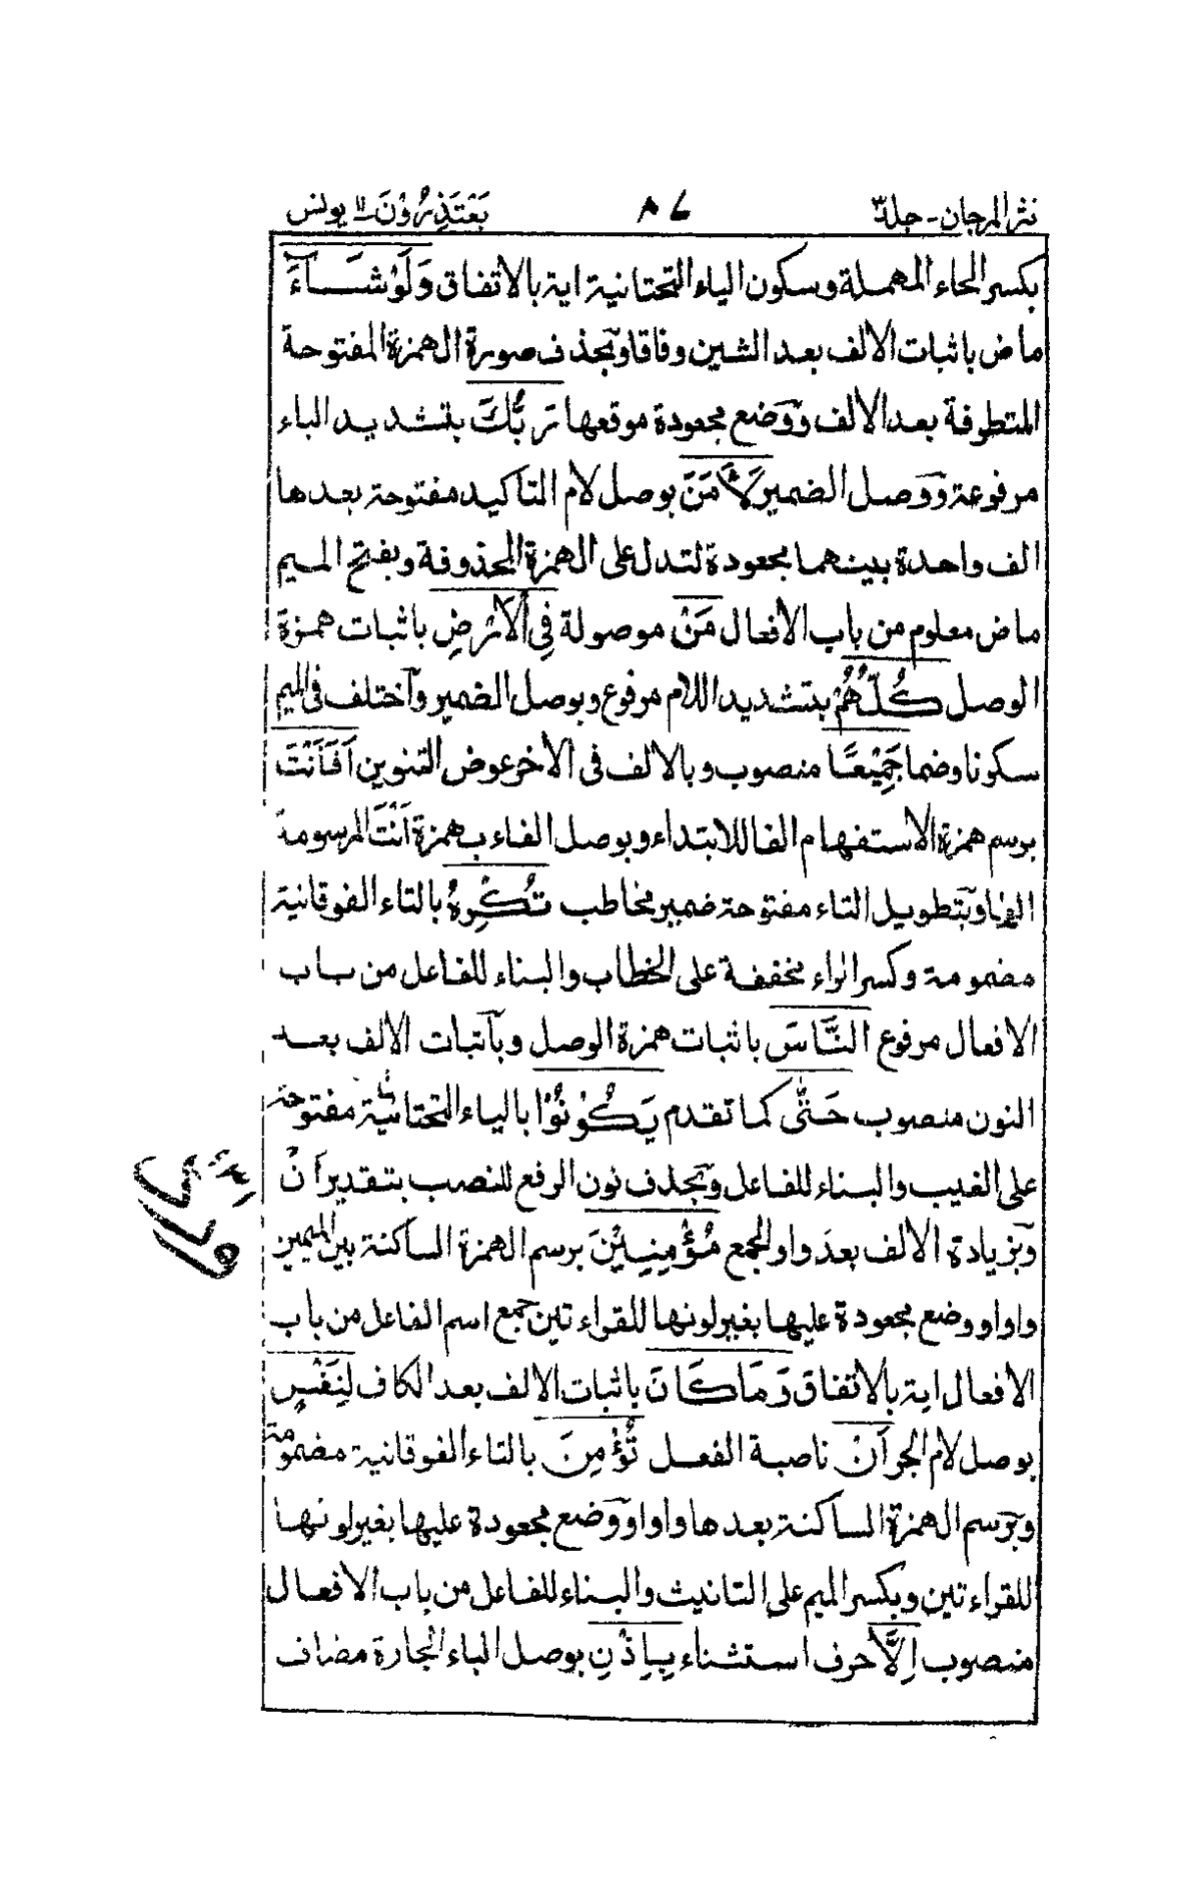 نثر المرجان - جلد٣ ٨٧ يَعْتَذِرُوْنَ ١١ يونس
بكسر الحاء المهملة وسكون الياء التحتانية اية بالاتفاق وَلَوْ شَآءَ
ماض باثبات الالف بعد الشين وفاقا وبحذف صورة الهمزة المفتوحة
المتطرفة بعد الالف ووضع مجعودة موقعها رَبُّكَ بتشديد الباء
مرفوعة ووصل الضمير لَاٰمَنَ بوصل لام التاكيد مفتوحة بعدها
الف واحدة بينهما مجعودة لتدل على الهمزة المحذوفة وبفتح الميم
ماض معلوم من باب الافعال مَنْ موصولة فِي الْاَرْضِ باثبات همزة
الوصل كُلُّهُمْ بتشديد اللام مرفوع وبوصل الضمير واختلف فى الميم
سكونا وضما جَمِيْعًا منصوب وبالالف فى الاخر عوض التنوين اَفَاَنْتَ
برسم همزة الاستفهام الفا للابتداء وبوصل الفاء بهمزة اَنْتَ المرسومة
الفا وبتطويل التاء مفتوحة ضمير مخاطب تُكْرِهُ بالتاء الفوقانية
مضمومة وكسر الراء مخففة على الخطاب والبناء للفاعل من باب
الافعال مرفوع النَّاسَ باثبات همزة الوصل وباثبات الالف بعد
النون منصوب حَتّٰى كما تقدم يَكُوْنُوْا بالياء التحتانية مفتوحة
على الغيب والبناء للفاعل وبحذف نون الرفع للنصب بتقدير اَنْ
وبزيادة الالف بعد واو الجمع مُؤْمِنِيْنَ برسم الهمزة الساكنة بين الميمين
واوا ووضع مجعودة عليها بغير لونها للقراءتين جمع اسم الفاعل من باب
الافعال اية بالاتفاق وَمَا كَانَ باثبات الالف بعد الكاف لِنَفْسٍ
بوصل لام الجر اَنْ ناصبة الفعل تُؤْمِنَ بالتاء الفوقانية مضمومة
وبرسم الهمزة الساكنة بعدها واوا ووضع مجعودة عليها بغير لونها
للقراءتين وبكسر الميم على التانيث والبناء للفاعل من باب الافعال
منصوب اِلَّا حرف استثناء بِاِذْنِ بوصل الباء الجارة مضاف